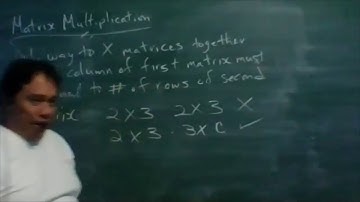 Matrix Multiplication
way to X matrices together
column of first matrix must
to # of rows of second
2x3 2x3 X
2x3 · 3xC ✓